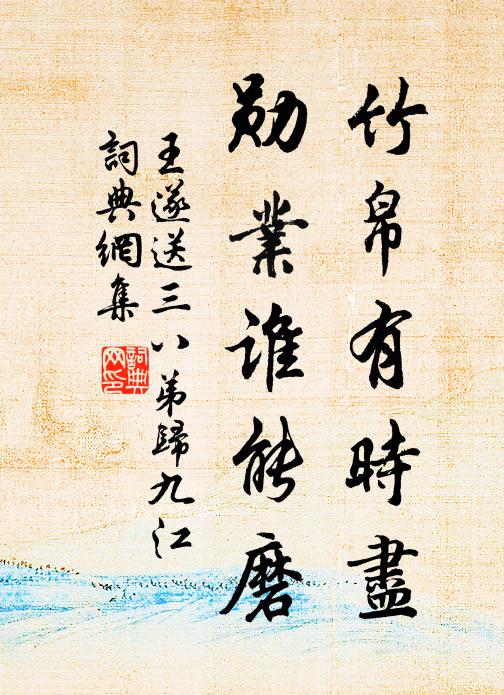 竹帛有時盡
勛業誰能磨
王遂送三八弟歸九江
詞典網集
詞典网印